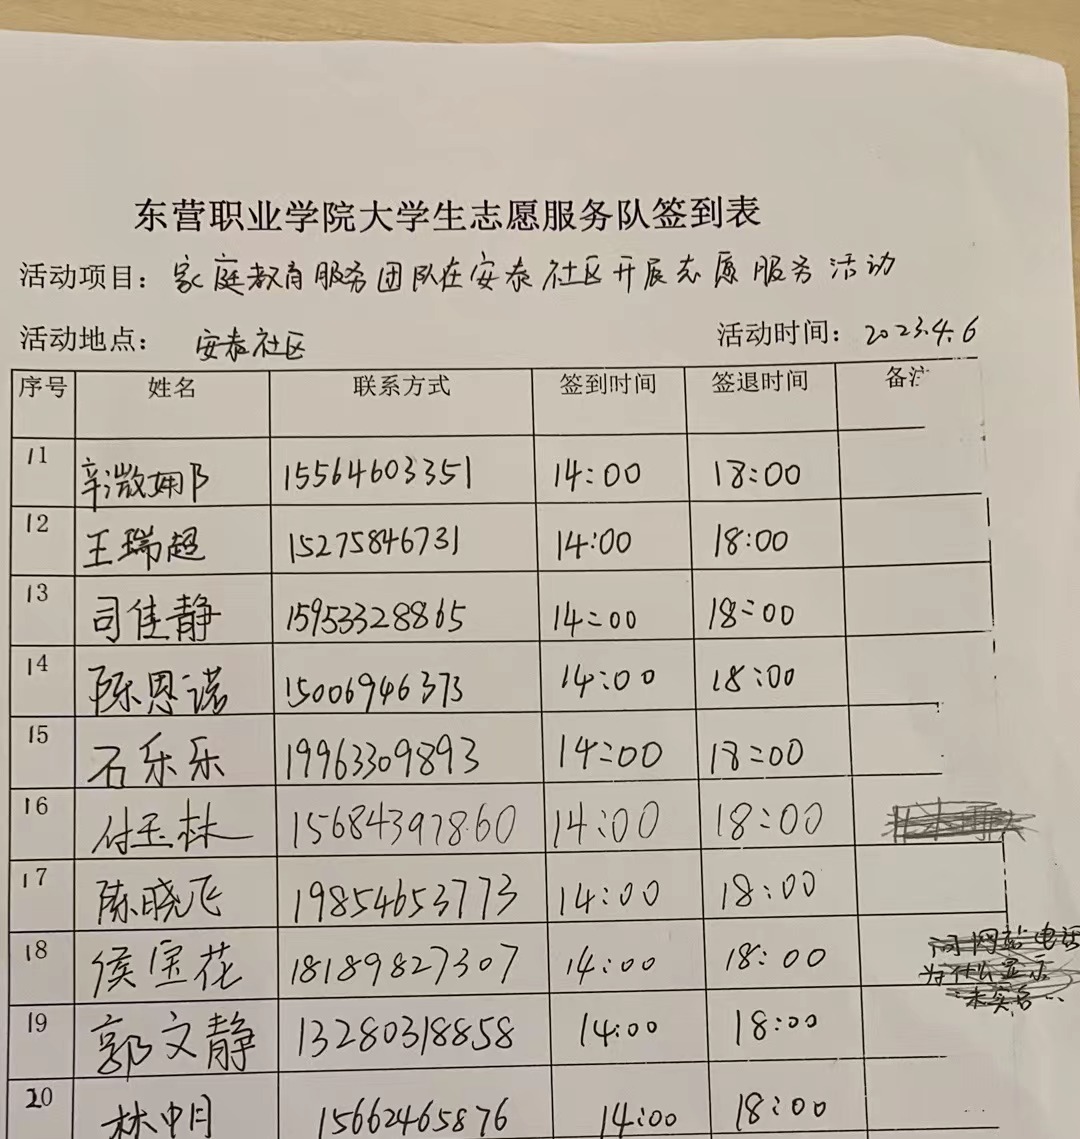 东营职业学院大学生志愿服务队签到表
活动项目：家庭教育服务团队在安泰社区开展志愿服务活动
活动地点：安泰社区 活动时间：2023.4.6
序号 姓名 联系方式 签到时间 签退时间 备注
11 辛溦娜 15564603351 14:00 18:00
12 王瑞超 15275846731 14:00 18:00
13 司佳静 15953328865 14:00 18:00
14 陈恩诺 15006946373 14:00 18:00
15 石乐乐 19963309893 14:00 18:00
16 付玉林 15684397860 14:00 18:00
17 陈晓飞 19854653773 14:00 18:00
18 侯宝花 18189827307 14:00 18:00 问网站电话
为什么显示
未实名
19 郭文静 13280318858 14:00 18:00
20 林中月 15662465876 14:00 18:00